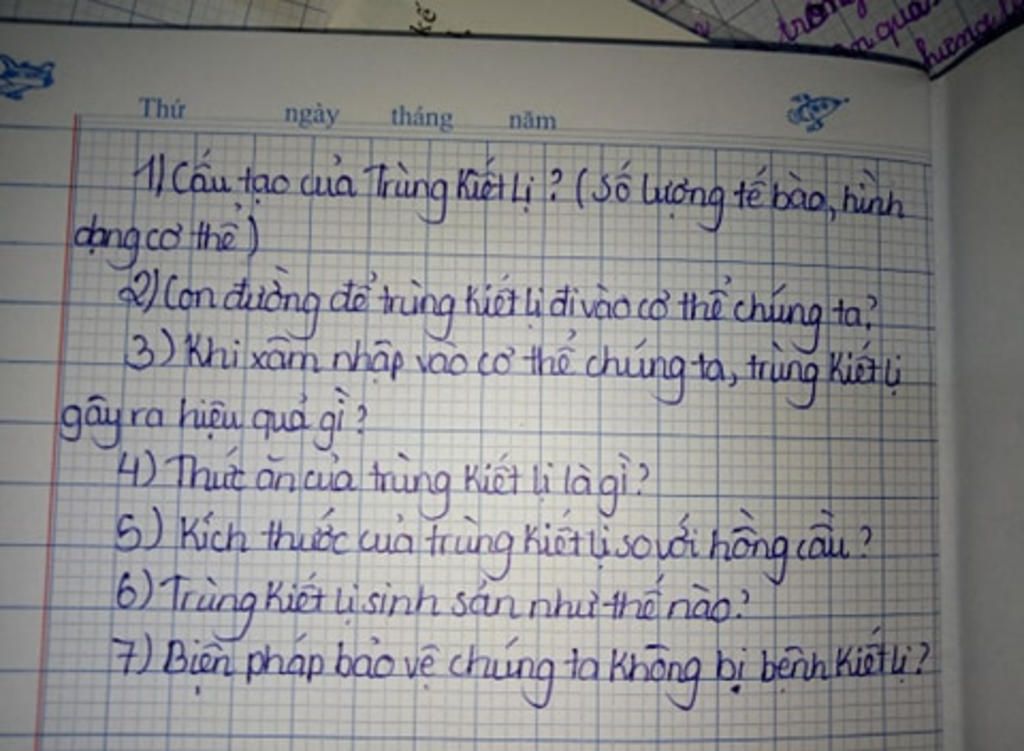 kế
trong
n quá
hiện
Thứ ngày tháng năm
1) Cấu tạo của Trùng Kiết Lị? (Số lượng tế bào, hình
dạng cơ thể)
2) Con đường để trùng Kiết lị đi vào cơ thể chúng ta?
3) Khi xâm nhập vào cơ thể chúng ta, trùng Kiết lị
gây ra hiệu quả gì?
4) Thức ăn của trùng Kiết lị là gì?
5) Kích thước của trùng Kiết lị so với hồng cầu?
6) Trùng Kiết lị sinh sản như thế nào?
7) Biện pháp bảo vệ chúng ta không bị bệnh Kiết lị?